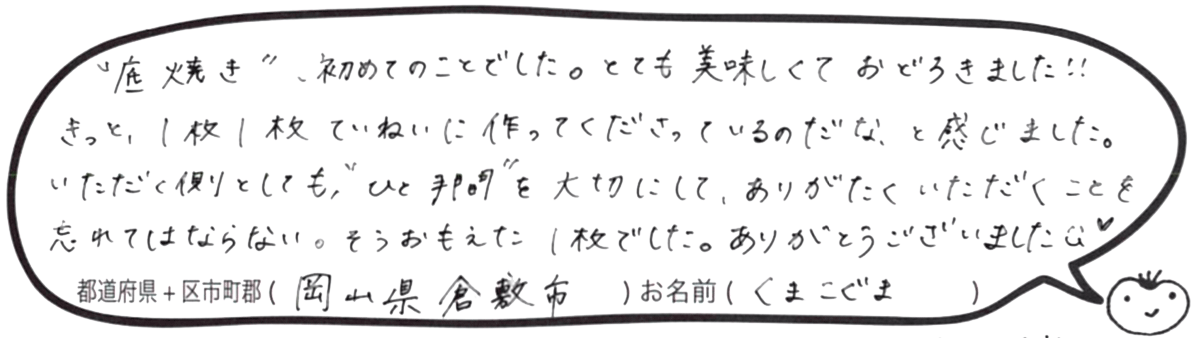 "底焼き"、初めてのことでした。とても美味しくておどろきました!!
きっと、1枚1枚ていねいに作ってくださっているのだな、と感じました。
いただく側としても、"ひと手間"を大切にして、ありがたくいただくことを
忘れてはならない。そうおもえた1枚でした。ありがとうございました
都道府県+区市町郡(岡山県倉敷市)お名前(くまこぐま)